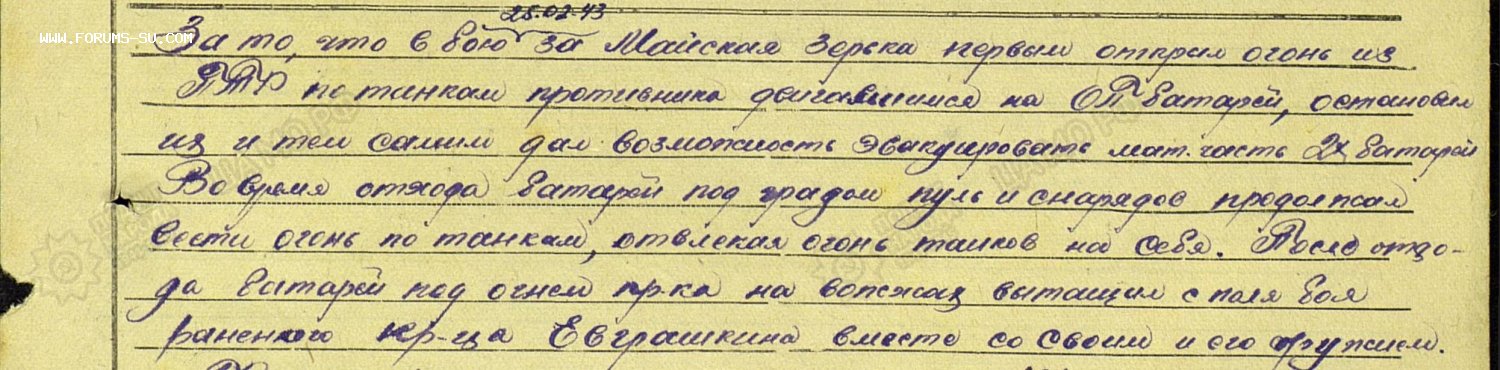 25.02.43
WWW.FORUMS-SU.COM
За то, что в бою за Майская Зорька первым открыл огонь из
ПТР по танкам противника двигавшимся на ОП батарей, остановил
их и тем самым дал возможность эвакуировать мат.часть 2х батарей
Во время отхода батарей под градом пуль и снарядов продолжал
вести огонь по танкам, отвлекая огонь танков на себя. После отхо-
да батарей под огнем пр-ка на вожжах вытащил с поля боя
раненого кр-ца Евграшкина вместе со своим и его оружием.